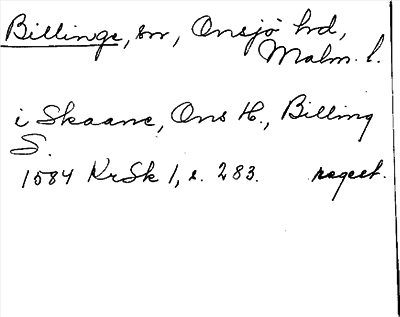 Billinge, sn, Onsjö hd,
Malm. l.
i Skaane, Ons H., Billing
S.
1584 KrSk 1, s. 283. regest.